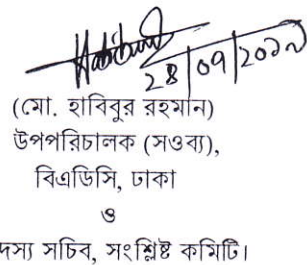 (মো. হাবিবুর রহমান)
উপপরিচালক (সওব্য),
বিএডিসি, ঢাকা
ও
দস্য সচিব, সংশ্লিষ্ট কমিটি।